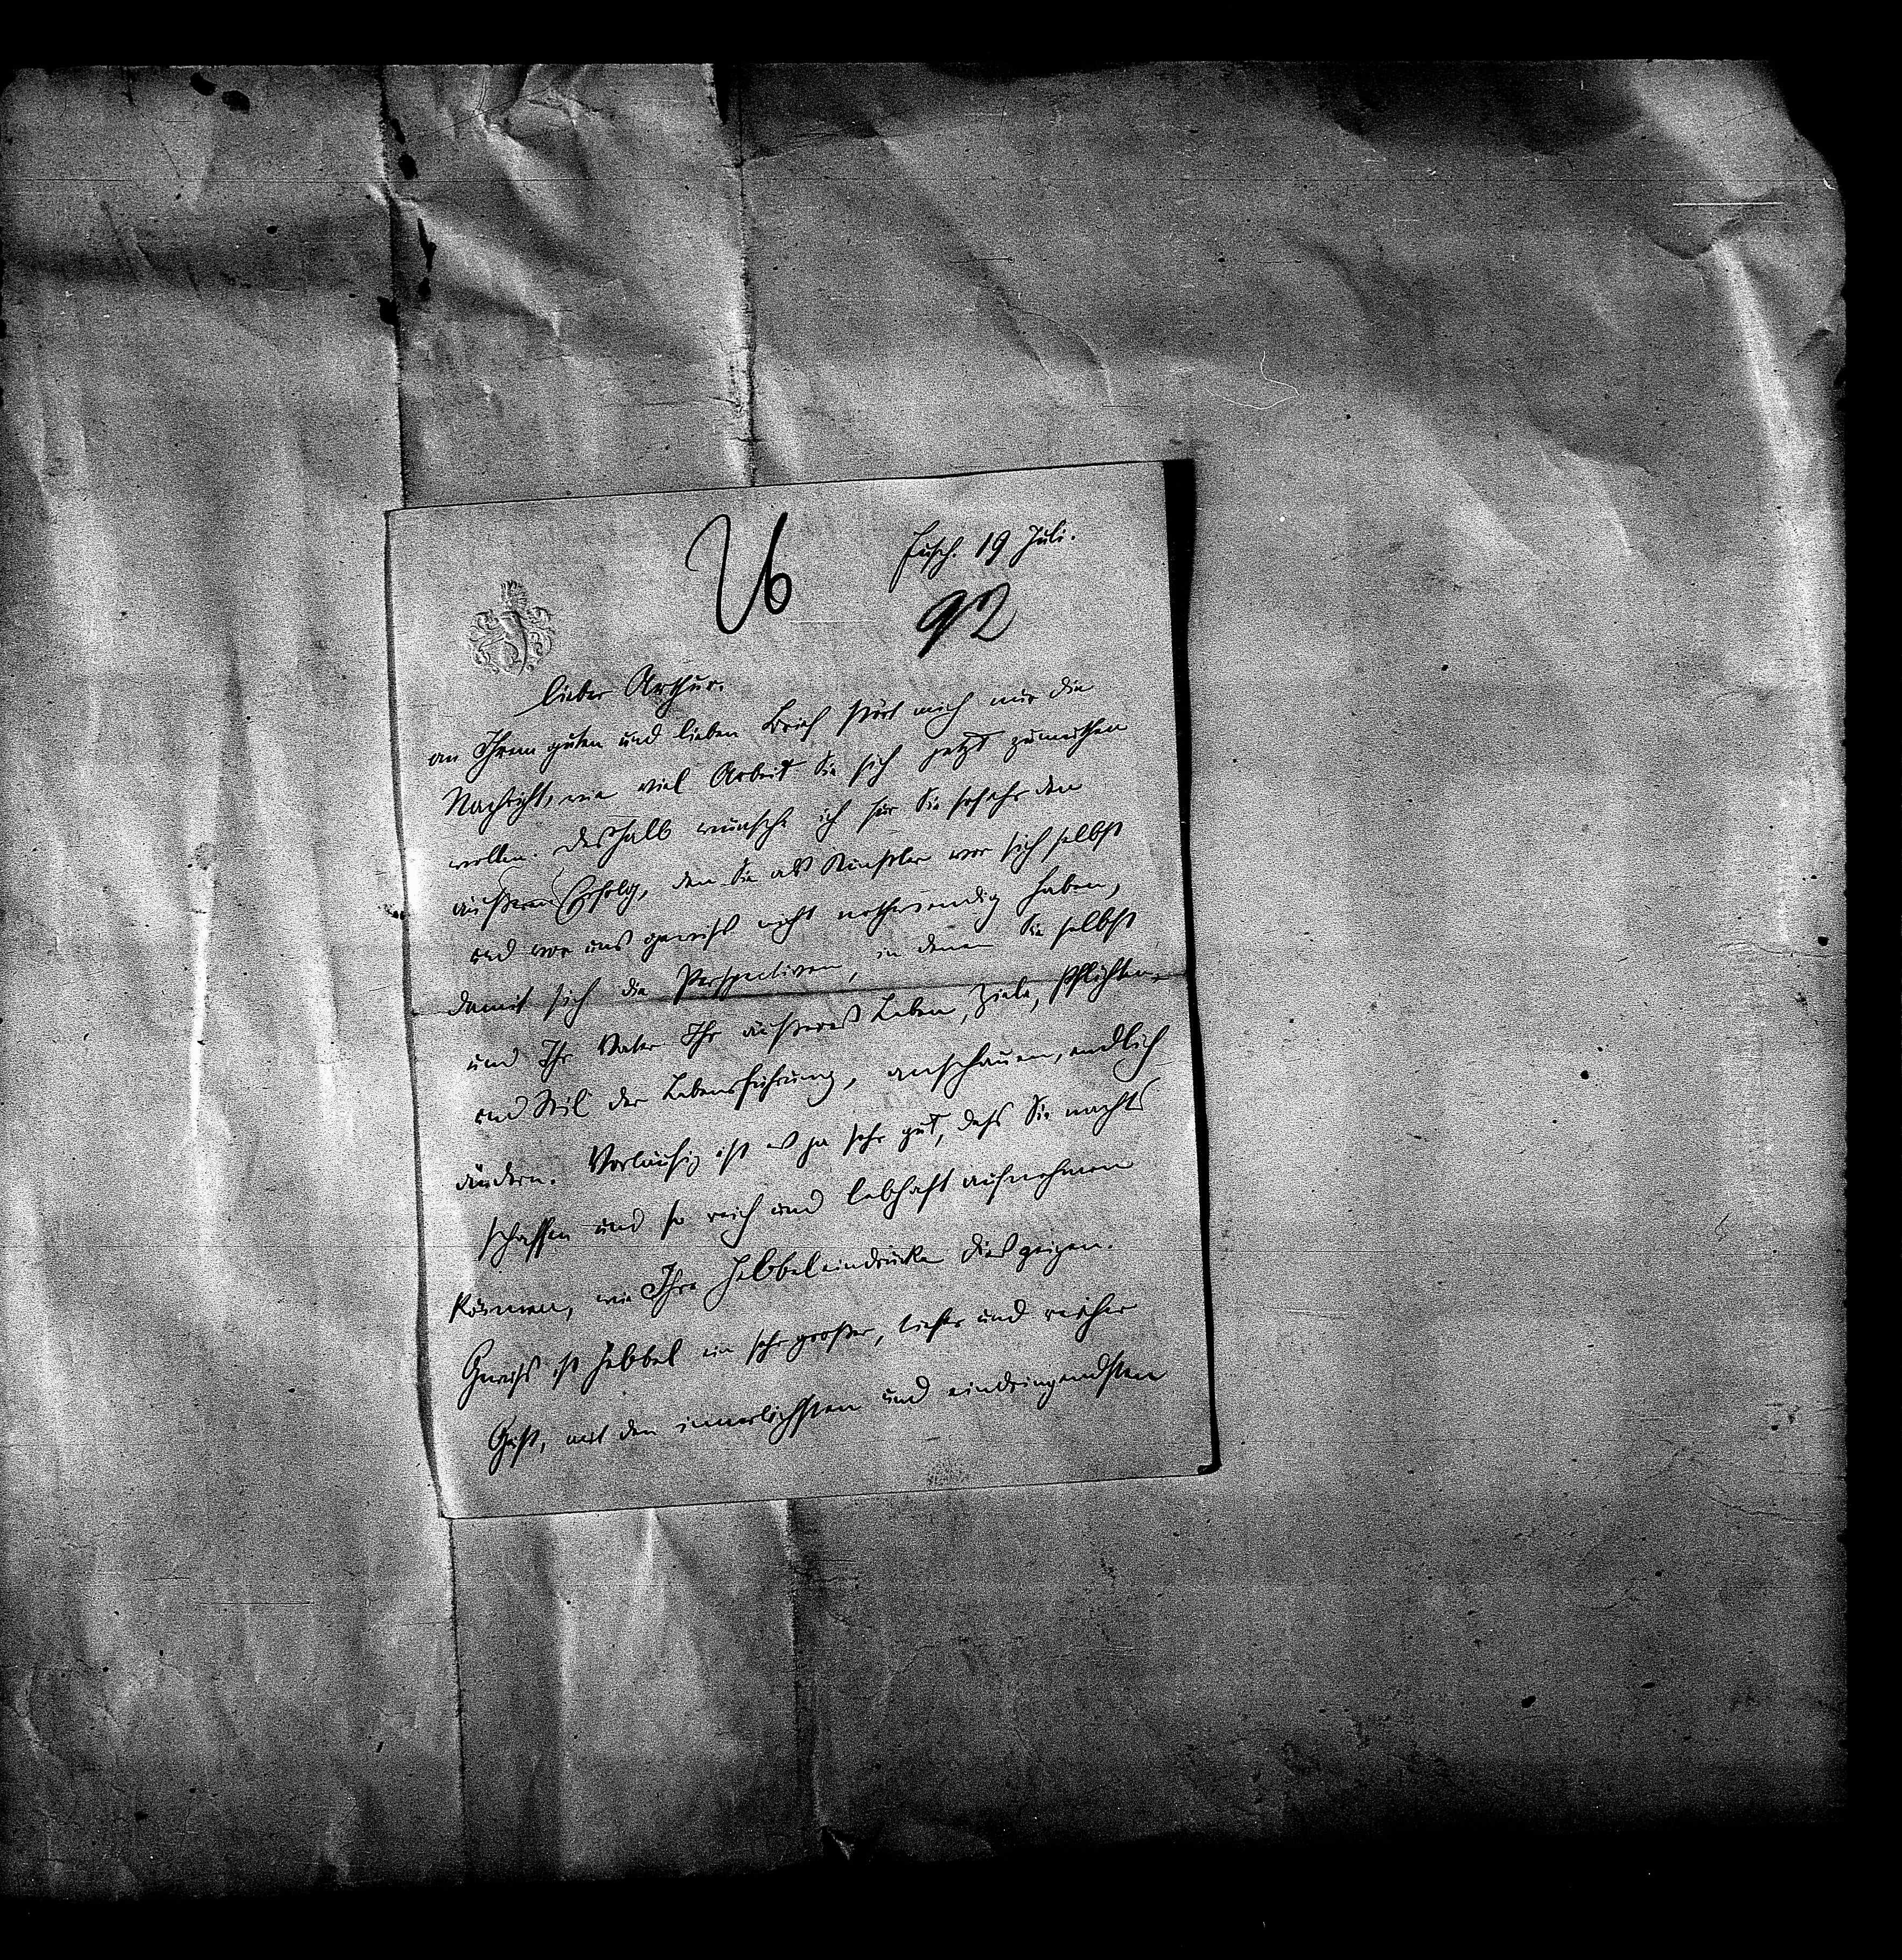 Fusch. 19 Juli.
26
92
lieber Arthur.
an Ihrem guten und lieben Brief stört mich nur die
Nachricht, wie viel Arbeit Sie sich jetzt zumuthen
wollen. Deshalb wünsche ich für Sie so sehr den
äußeren Erfolg, den Sie als Künstler vor sich selbst
und vor uns gewiss nicht nothwendig haben,
damit sich die Perspectiven, in denen Sie selbst
und Ihr Vater Ihr äußeres Leben, Ziele, Pflichten
und Stil der Lebensführung, anschauen, endlich
ändern. Vorläufig ist es ja sehr gut, dass Sie nachts
schaffen und so reich und lebhaft aufnehmen
können, wie Ihre Hebbeleindrücke dies zeigen.
Gewiss ist Hebbel ein sehr großer, tiefer und reicher
Geist, mit den innerlichsten und eindringendsten